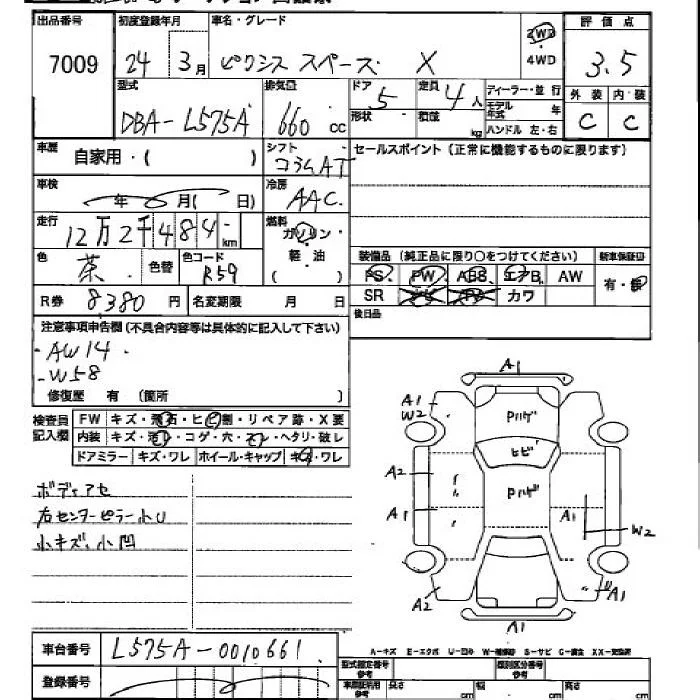 出品番号 初度登録年月 車名・グレード 2WD 評価点
7009 24年 3月 ピクシス スペース X 4WD 3.5
型式 排気量 ドア 定員 ディーラー・並行 外装 内・装
DBA-L575A 660cc 5 4人 モデル年式 年 C C
形状 積載 kg ハンドル 左・右
車歴 自家用・( ) シフト コラムAT セールスポイント (正常に機能するものに限ります)
車検 年 月( 日) 冷房 AAC
走行 12万2千484km 燃料 ガソリン・軽油 ( )
色 茶 色替 色コード R59 装備品 (純正品に限り○をつけてください) 新車保証書
PS PW ABS エアB AW 有・無
SR ナビ TV カワ
R券 8,380円 名変期限 月 日 後日品
注意事項申告欄 (不具合内容等は具体的に記入して下さい)
・AW14
・W58
修復歴 有 (箇所 )
検査員記入欄 FW キズ・飛石・ヒビ割・リペア跡・X要
内装 キズ・汚レ・コゲ・穴・ヘタリ・破レ
ドアミラー キズ・ワレ ホイール・キャップ キズ・ワレ
ボディアセ
右センターピラー小U
小キズ、小凹
A1
A1
W2
Pハゲ
ヒビ
A2
Pハゲ
A1
A1
W2
A2
A1
A1
車台番号 L575A-0010661
A-キズ E-エクボ U-凹み W-補修跡 S-サビ C-腐食 XX-交換済
登録番号
型式指定番号 参考 類別区分番号 参考
長さ cm 幅 cm 高さ cm